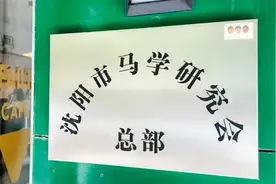 沈阳市马学研究会
总部